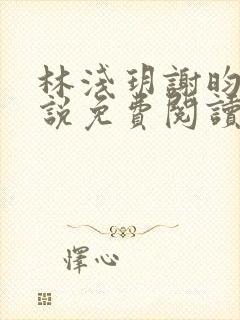 林淺玥謝昀
說免費閱讀
懌心